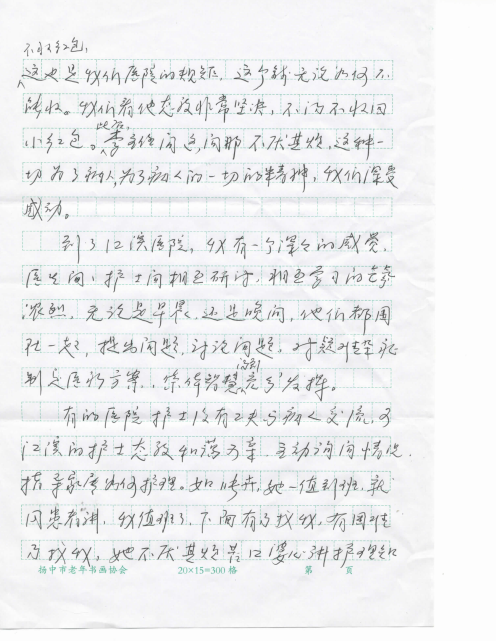 不收红包,
这也是我们医院的规矩,这个钱无论如何不
能收。我们看他态度非常坚决,不得不收回
小红包。此后,李主任问这问那不厌其烦,这种一
切为了病人,为了病人的一切的精神,我们深受
感动。
到了江滨医院,我有一个深深的感觉,
医生间,护士间相互研讨,相互学习的气氛
浓烈,无论是早晨,还是晚间,他们都围
在一起,提出问题,讨论问题,对疑难杂症
制定医疗方案,集体智慧得到充分发挥。
有的医院护士没有工夫与病人交流,可
江滨的护士态度和蔼可亲,主动询问情况,
指导家属如何护理。如 她一值到班,就
同患者讲,我值班了,下面有事找我,有困难
事找我,她不厌其烦苦口婆心讲护理知
扬中市老年书画协会 20×15=300格 第 页